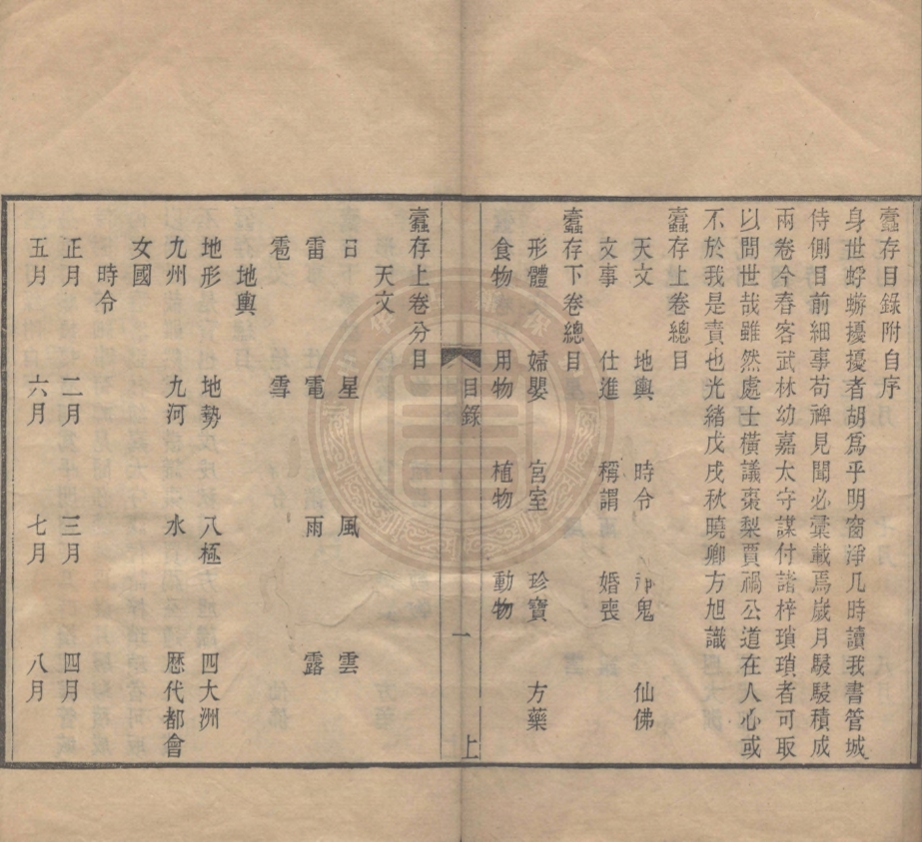 蠹存目錄附自序
身世蜉蝣擾擾者胡爲乎明窗淨几時讀我書管城
侍側目前細事苟禆見聞必彙載焉歲月駸駸積成
兩卷今春客武林幼嘉太守謀付諸梓瑣瑣者可取
以問世哉雖然處士橫議棗梨賈禍公道在人心或
不於我是責也光緒戊戌秋曉卿方旭識
蠹存上卷總目
天文 地輿 時令 神鬼 仙佛
文事 仕進 稱謂 婚喪
蠹存下卷總目
形體 婦嬰 宮室 珍寶 方藥
食物 用物 植物 動物
目錄 一 上
蠹存上卷分目
天文
日 星 風 雲
雷 電 雨 露
雹 雪
地輿
地形 地勢 八極 四大洲
九州 九河 水 歷代都會
女國
時令
正月 二月 三月 四月
五月 六月 七月 八月